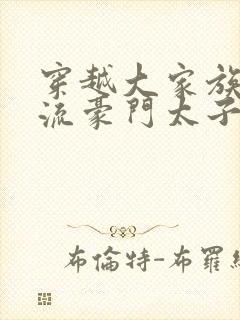 穿越大家族
流豪門太子
布倫特-布羅